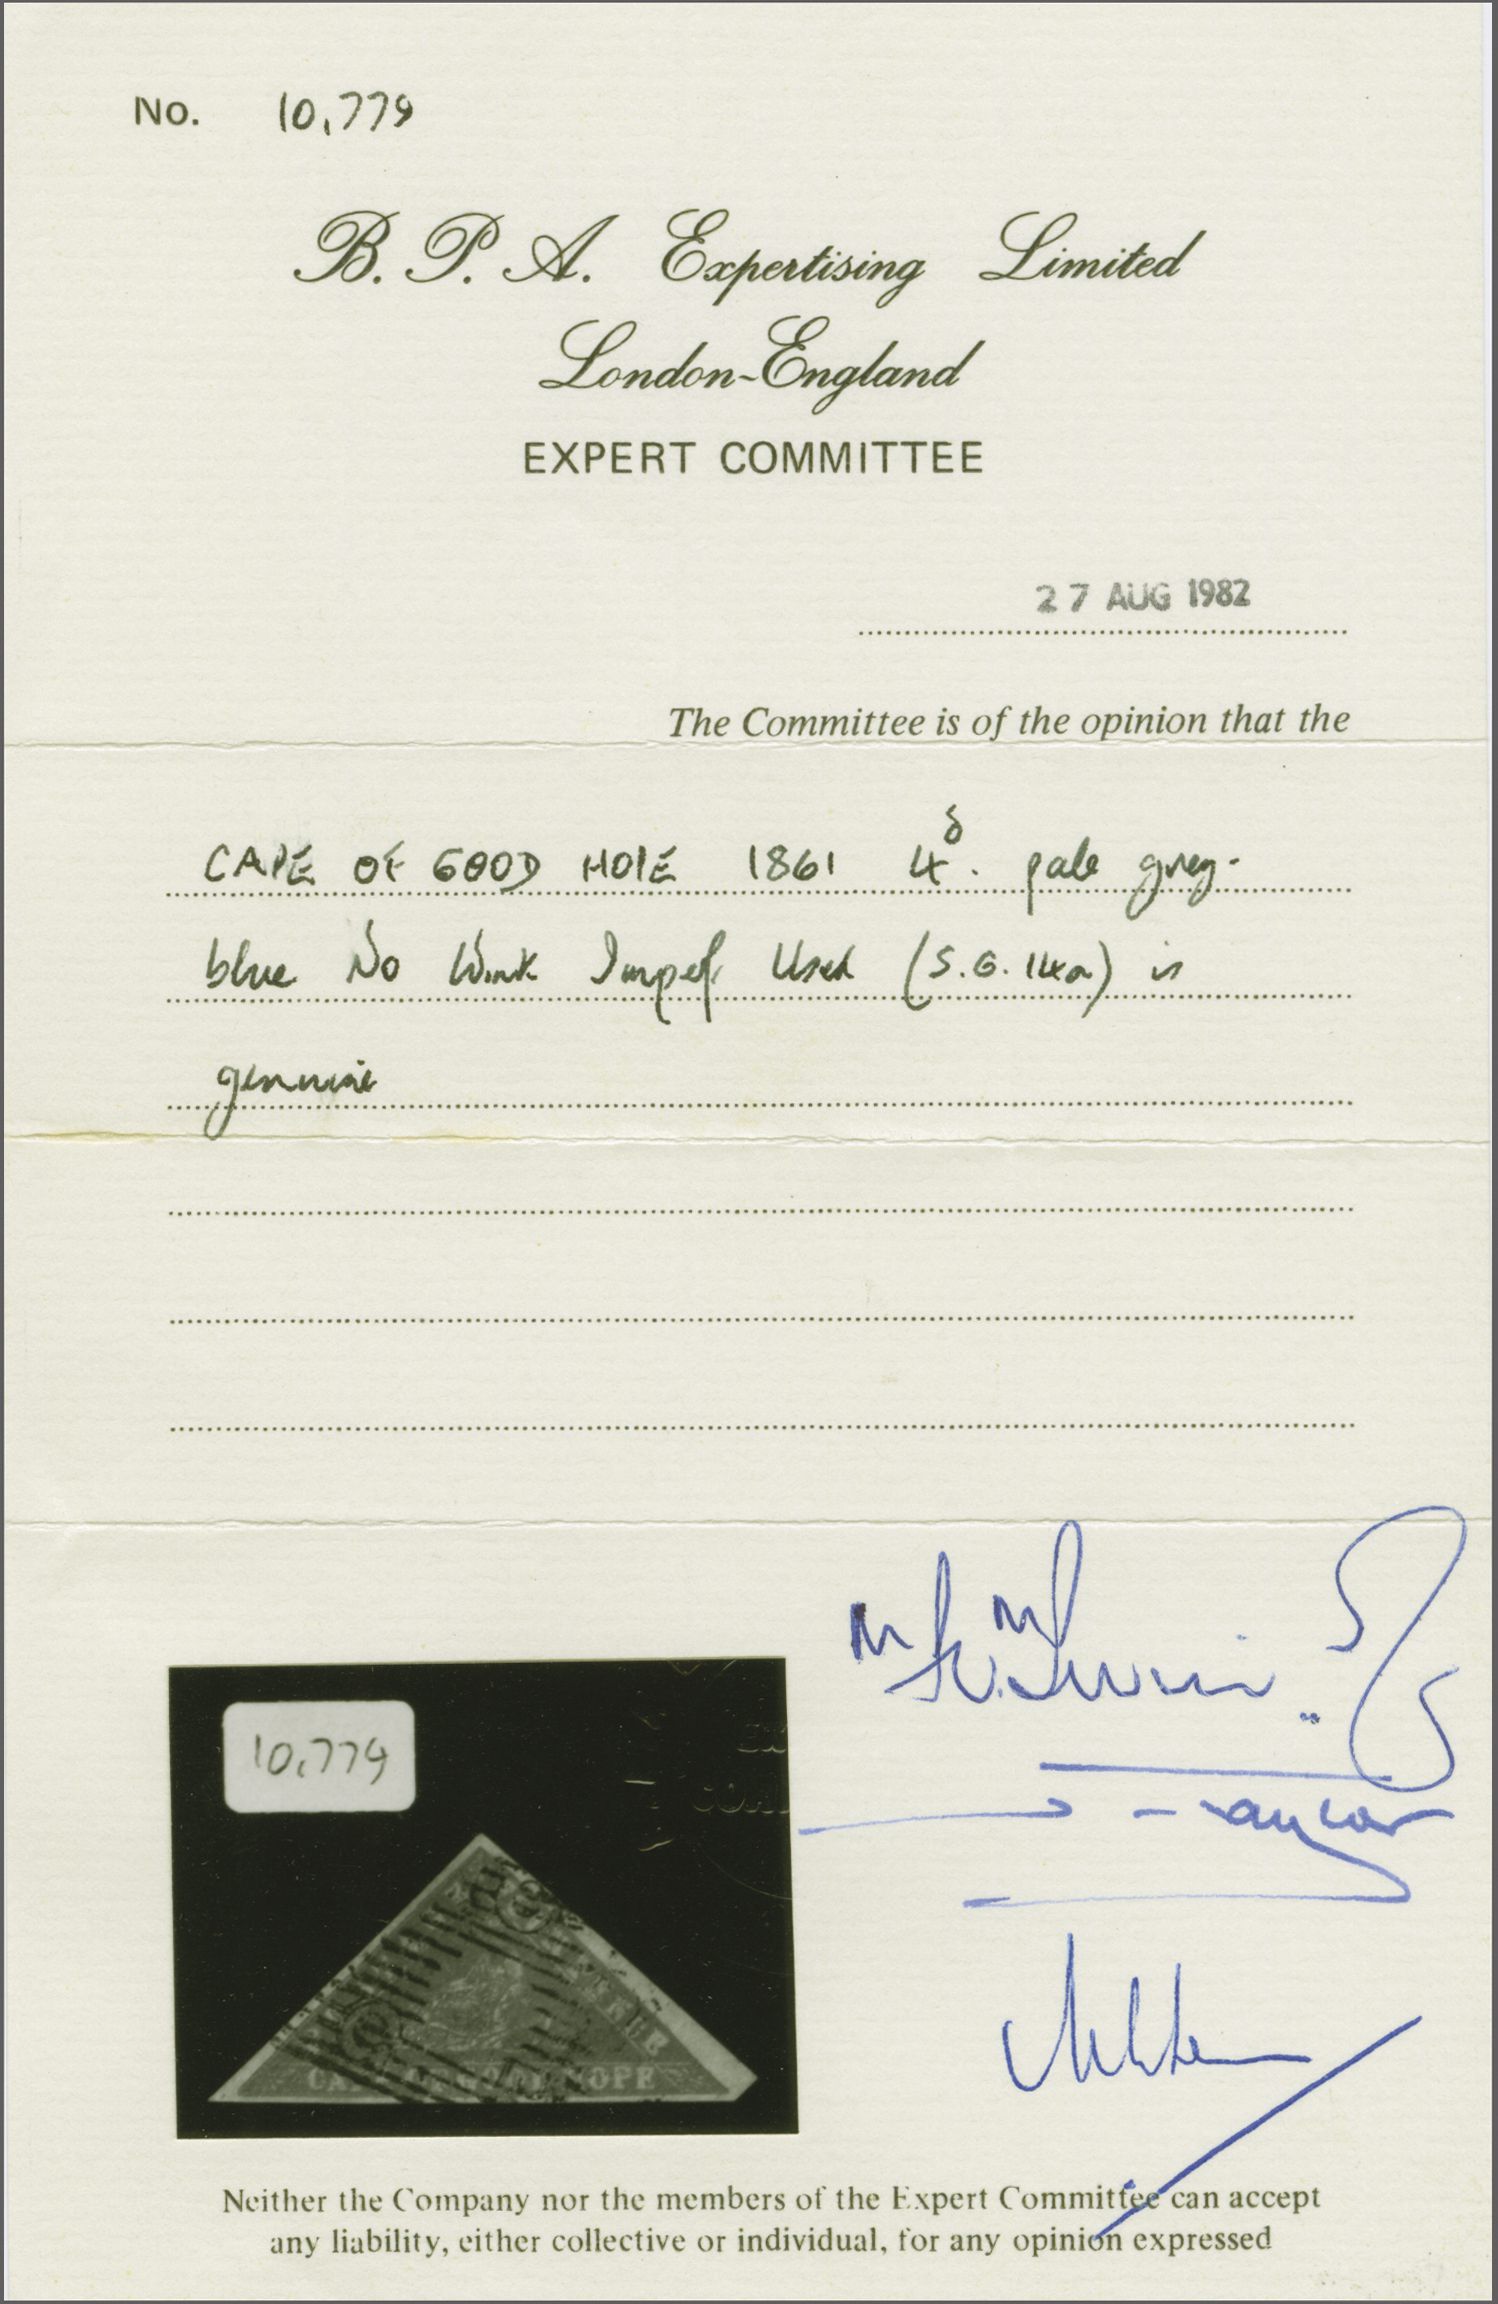 No. 10,779
B. P. A. Expertising Limited
London-England
EXPERT COMMITTEE
27 AUG 1982
The Committee is of the opinion that the
CAPE OF GOOD HOPE 1861 4d. pale grey-
blue No Wmk Imperf. Used (S.G. 14a) is
genuine
10,779
CAPE OF GOOD HOPE
Neither the Company nor the members of the Expert Committee can accept
any liability, either collective or individual, for any opinion expressed